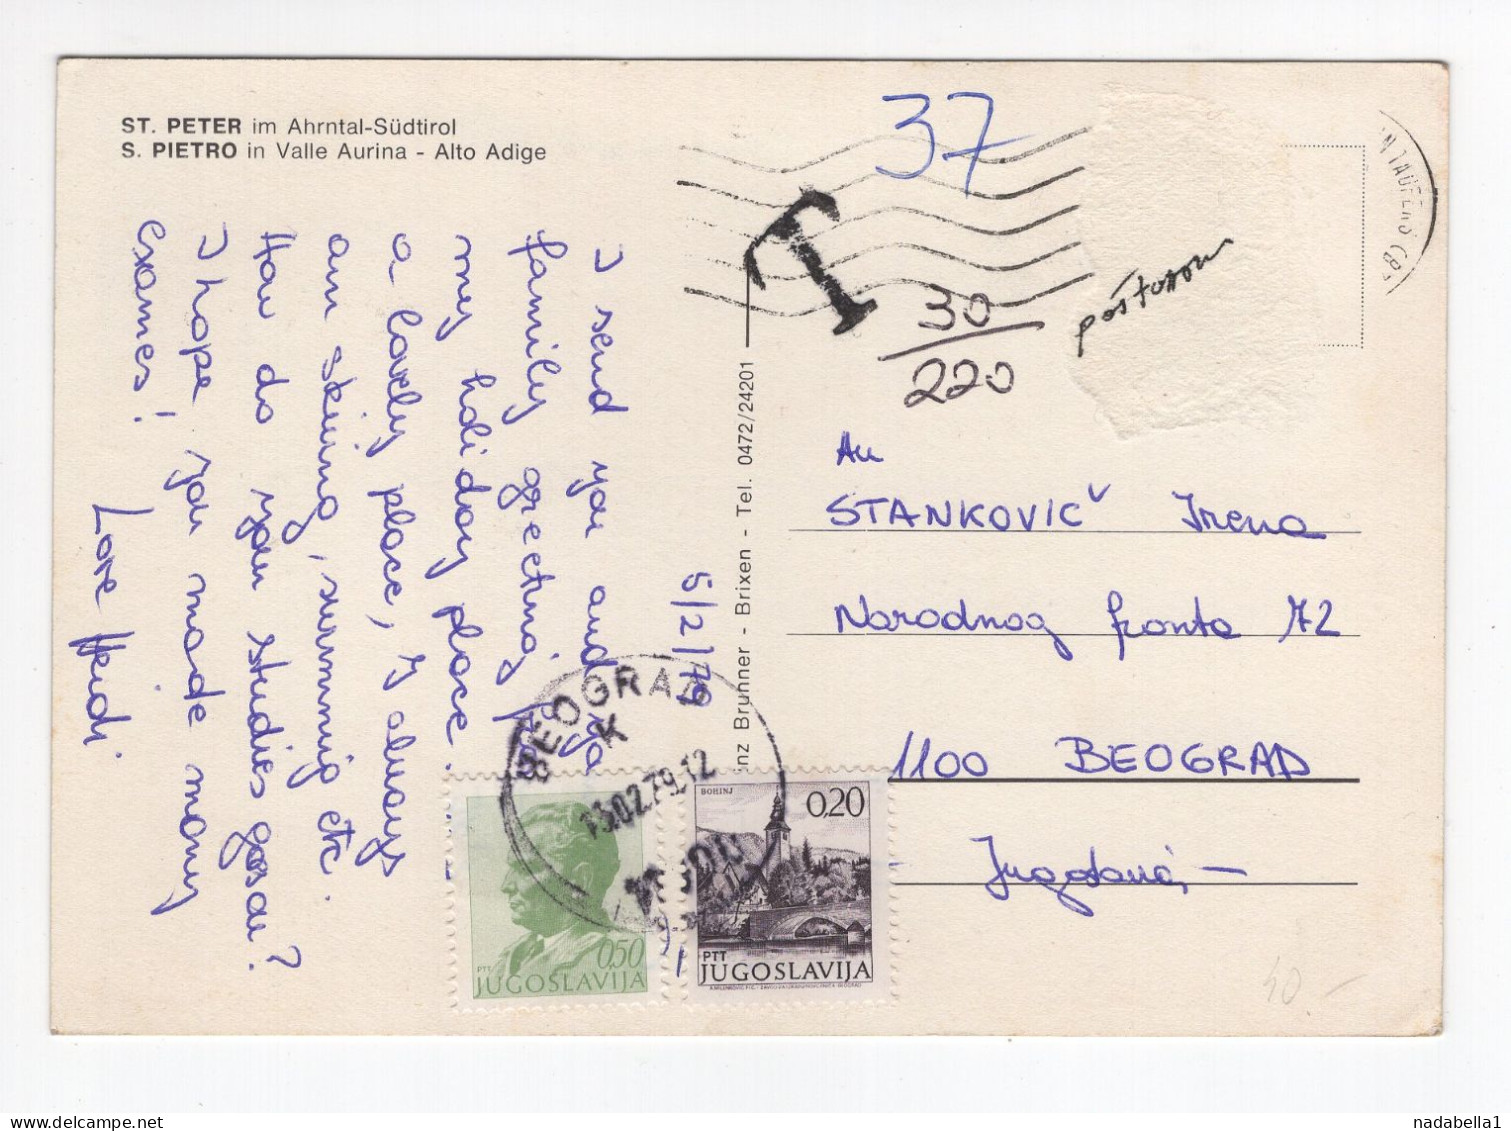 ST. PETER im Ahrntal-Südtirol
S. PIETRO in Valle Aurina - Alto Adige
I send you and
family greeting
my holiday place.
a lovely place, I always
am skiing, swimming etc.
How do you studies gason?
I hope you made many
exames!
Love Heidi
5/2/79
37
T
30
220
An
STANKOVIČ Irena
Narodnog fronta 72
1100 BEOGRAD
Jugoslavia -
Brunner - Brixen - Tel. 0472/24201
BEOGRAD
K
13.02.79.12
0,50
PTT
JUGOSLAVIJA
BOHINJ
0,20
PTT
JUGOSLAVIJA
40 -
nadabella1